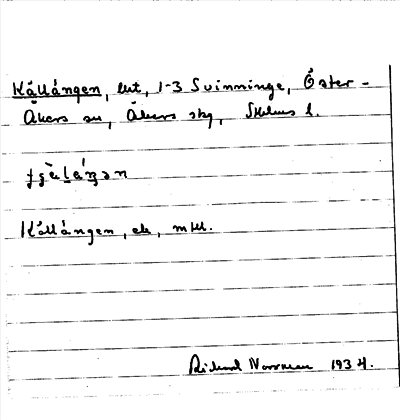 Källängen, lht, 1-3 Svinninge, Öster-
Åkers sn, Åkers skg, Sthlms l.
Källängen, ek, mtl.
Rickard Norrman 1934.